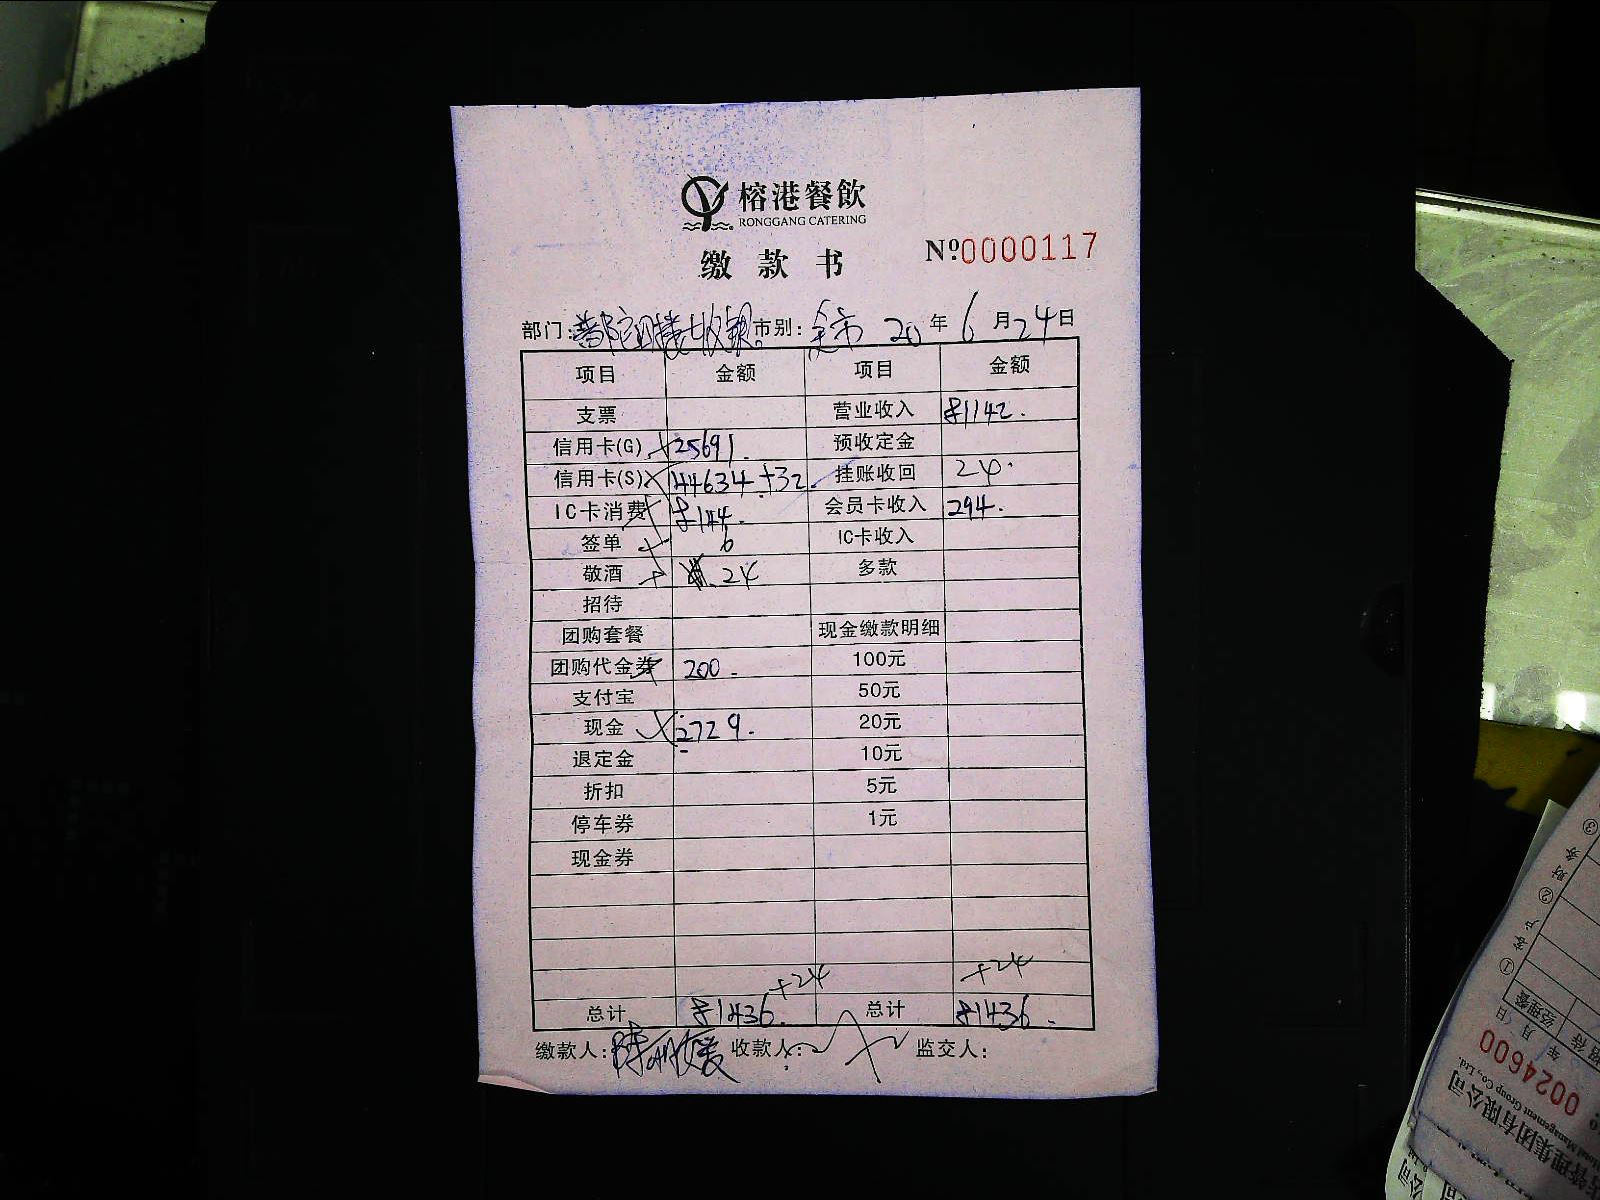 榕港餐飲
RONGGANG CATERING
缴款书
Nº:0000117
部门: 市别: 全市 20年6月24日
项目 金额 项目 金额
支票 营业收入 81142.
信用卡(G) 25691. 预收定金
信用卡(S) 44634.+32. 挂账收回 24.
IC卡消费 8144. 会员卡收入 294.
签单 6 IC卡收入
敬酒 24 多款
招待
团购套餐 现金缴款明细
团购代金券 200. 100元
支付宝 50元
现金 2729. 20元
退定金 10元
折扣 5元
停车券 1元
现金券
+24 +24
总计 81436. 总计 81436.
缴款人: 收款人: 监交人:
0024600